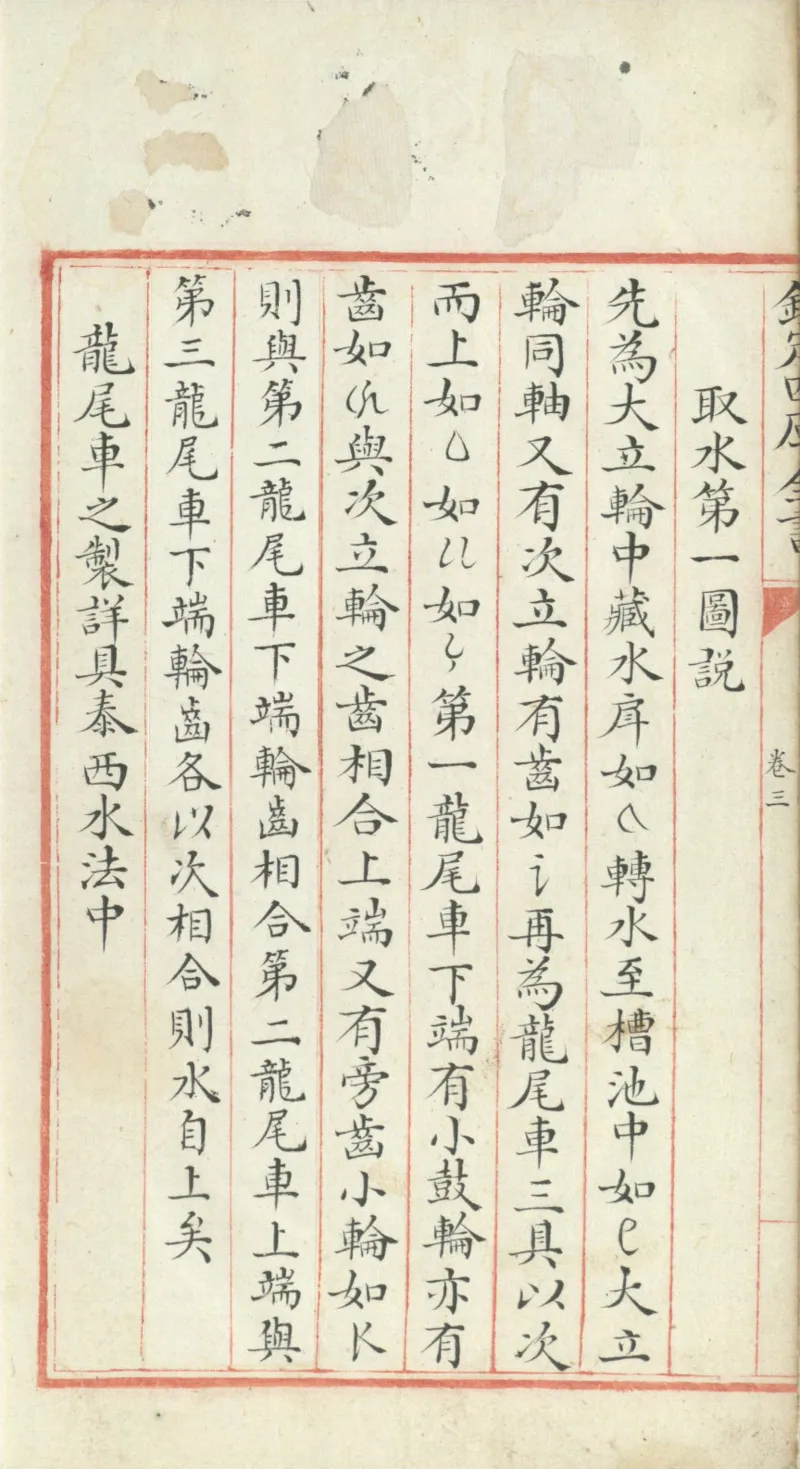 欽定四庫全書
卷三
取水第一圖説
先為大立輪中藏水戽如 轉水至槽池中如 大立
輪同軸又有次立輪有齒如 再為龍尾車三具以次
而上如 如 如 第一龍尾車下端有小鼓輪亦有
齒如 與次立輪之齒相合上端又有旁齒小輪如K
則與第二龍尾車下端輪齒相合第二龍尾車上端與
第三龍尾車下端輪齒各以次相合則水自上矣
龍尾車之製詳具泰西水法中